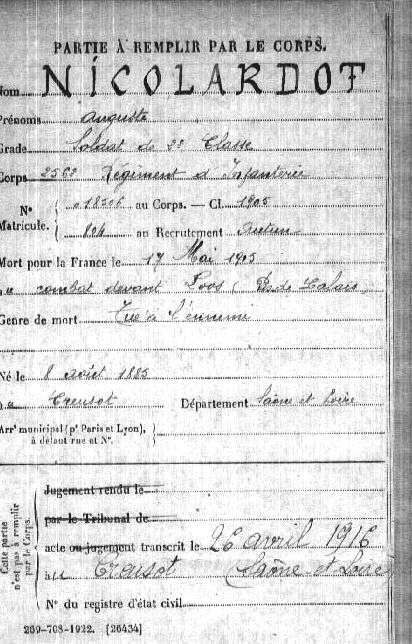 PARTIE À REMPLIR PAR LE CORPS.
Nom NICOLARDOT
Prénoms Auguste
Grade Soldat de 2e Classe
Corps 256e Régiment d'Infanterie
N° Matricule. { 018506 au Corps. — Cl. 1905
804 au Recrutement Autun
Mort pour la France le 17 Mai 1905
au combat devant Loos (Pas de Calais)
Genre de mort Tué à l'ennemi
Né le 8 août 1885
au Creusot Département Saône et Loire
Arrt municipal (pr Paris et Lyon), à défaut rue et N°.
Cette partie n'est pas à remplir par le Corps.
Jugement rendu le
par le Tribunal de
acte ou jugement transcrit le 26 avril 1916
au Creusot (Saône et Loire
N° du registre d'état civil
269-708-1922. [26434]